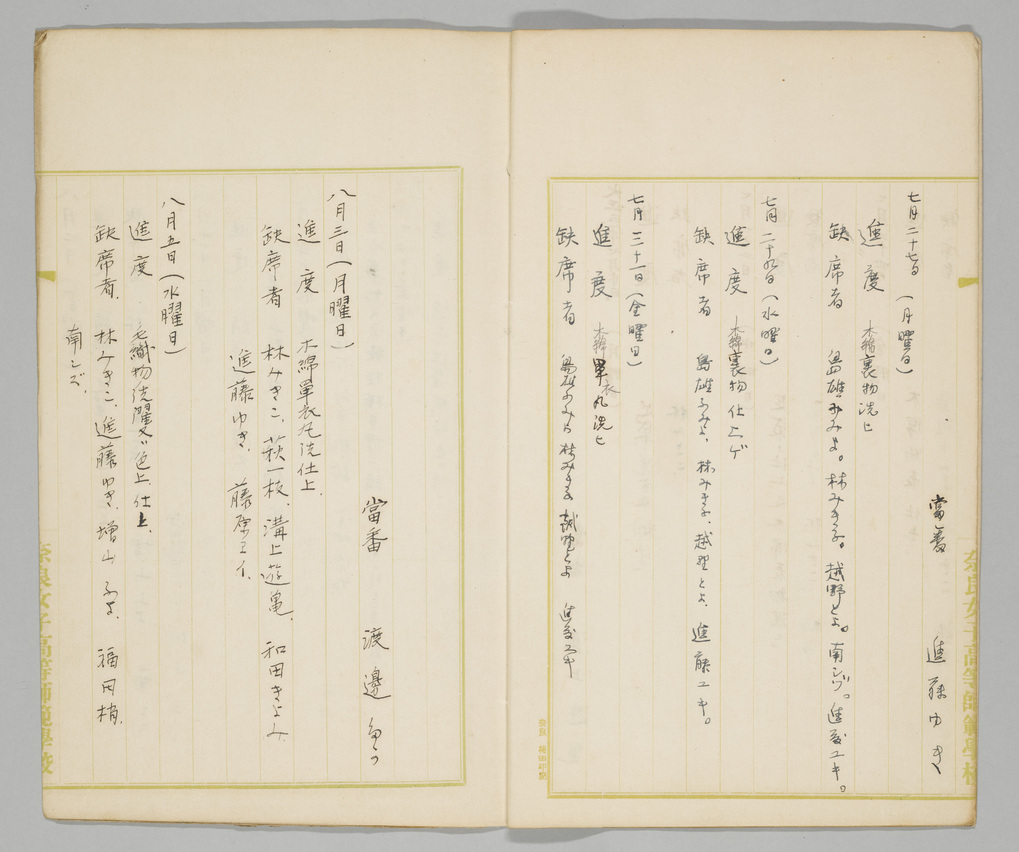 當番 進藤ゆき
七月二十七日(月曜日)
進度 木綿裏物洗ヒ
缺席者 島雄ふみよ。林みき子。越野とよ。南シヅ。進藤ユキ。
七月二十九日(水曜日)
進度 木綿裏物仕上ゲ
缺席者 島雄ふみよ、林みき子、越野とよ、進藤ユキ。
七月三十一日(金曜日)
進度 木綿單衣丸洗ヒ
缺席者 島雄ふみよ 林みき子 越野とよ 進藤ユキ
奈良女子高等師範學校
當番 渡邊
八月三日(月曜日)
進度 木綿單衣丸洗仕上、
缺席者 林みきこ、萩一枝、溝上遊亀、和田きよみ
進藤ゆき、藤原ミイ、
八月五日(水曜日)
進度 毛織物洗濯及ビ色上、仕上、
缺席者、林みきこ、進藤ゆき、増山ふよ、福田梢、
南シヅ、
奈良女子高等師範學校